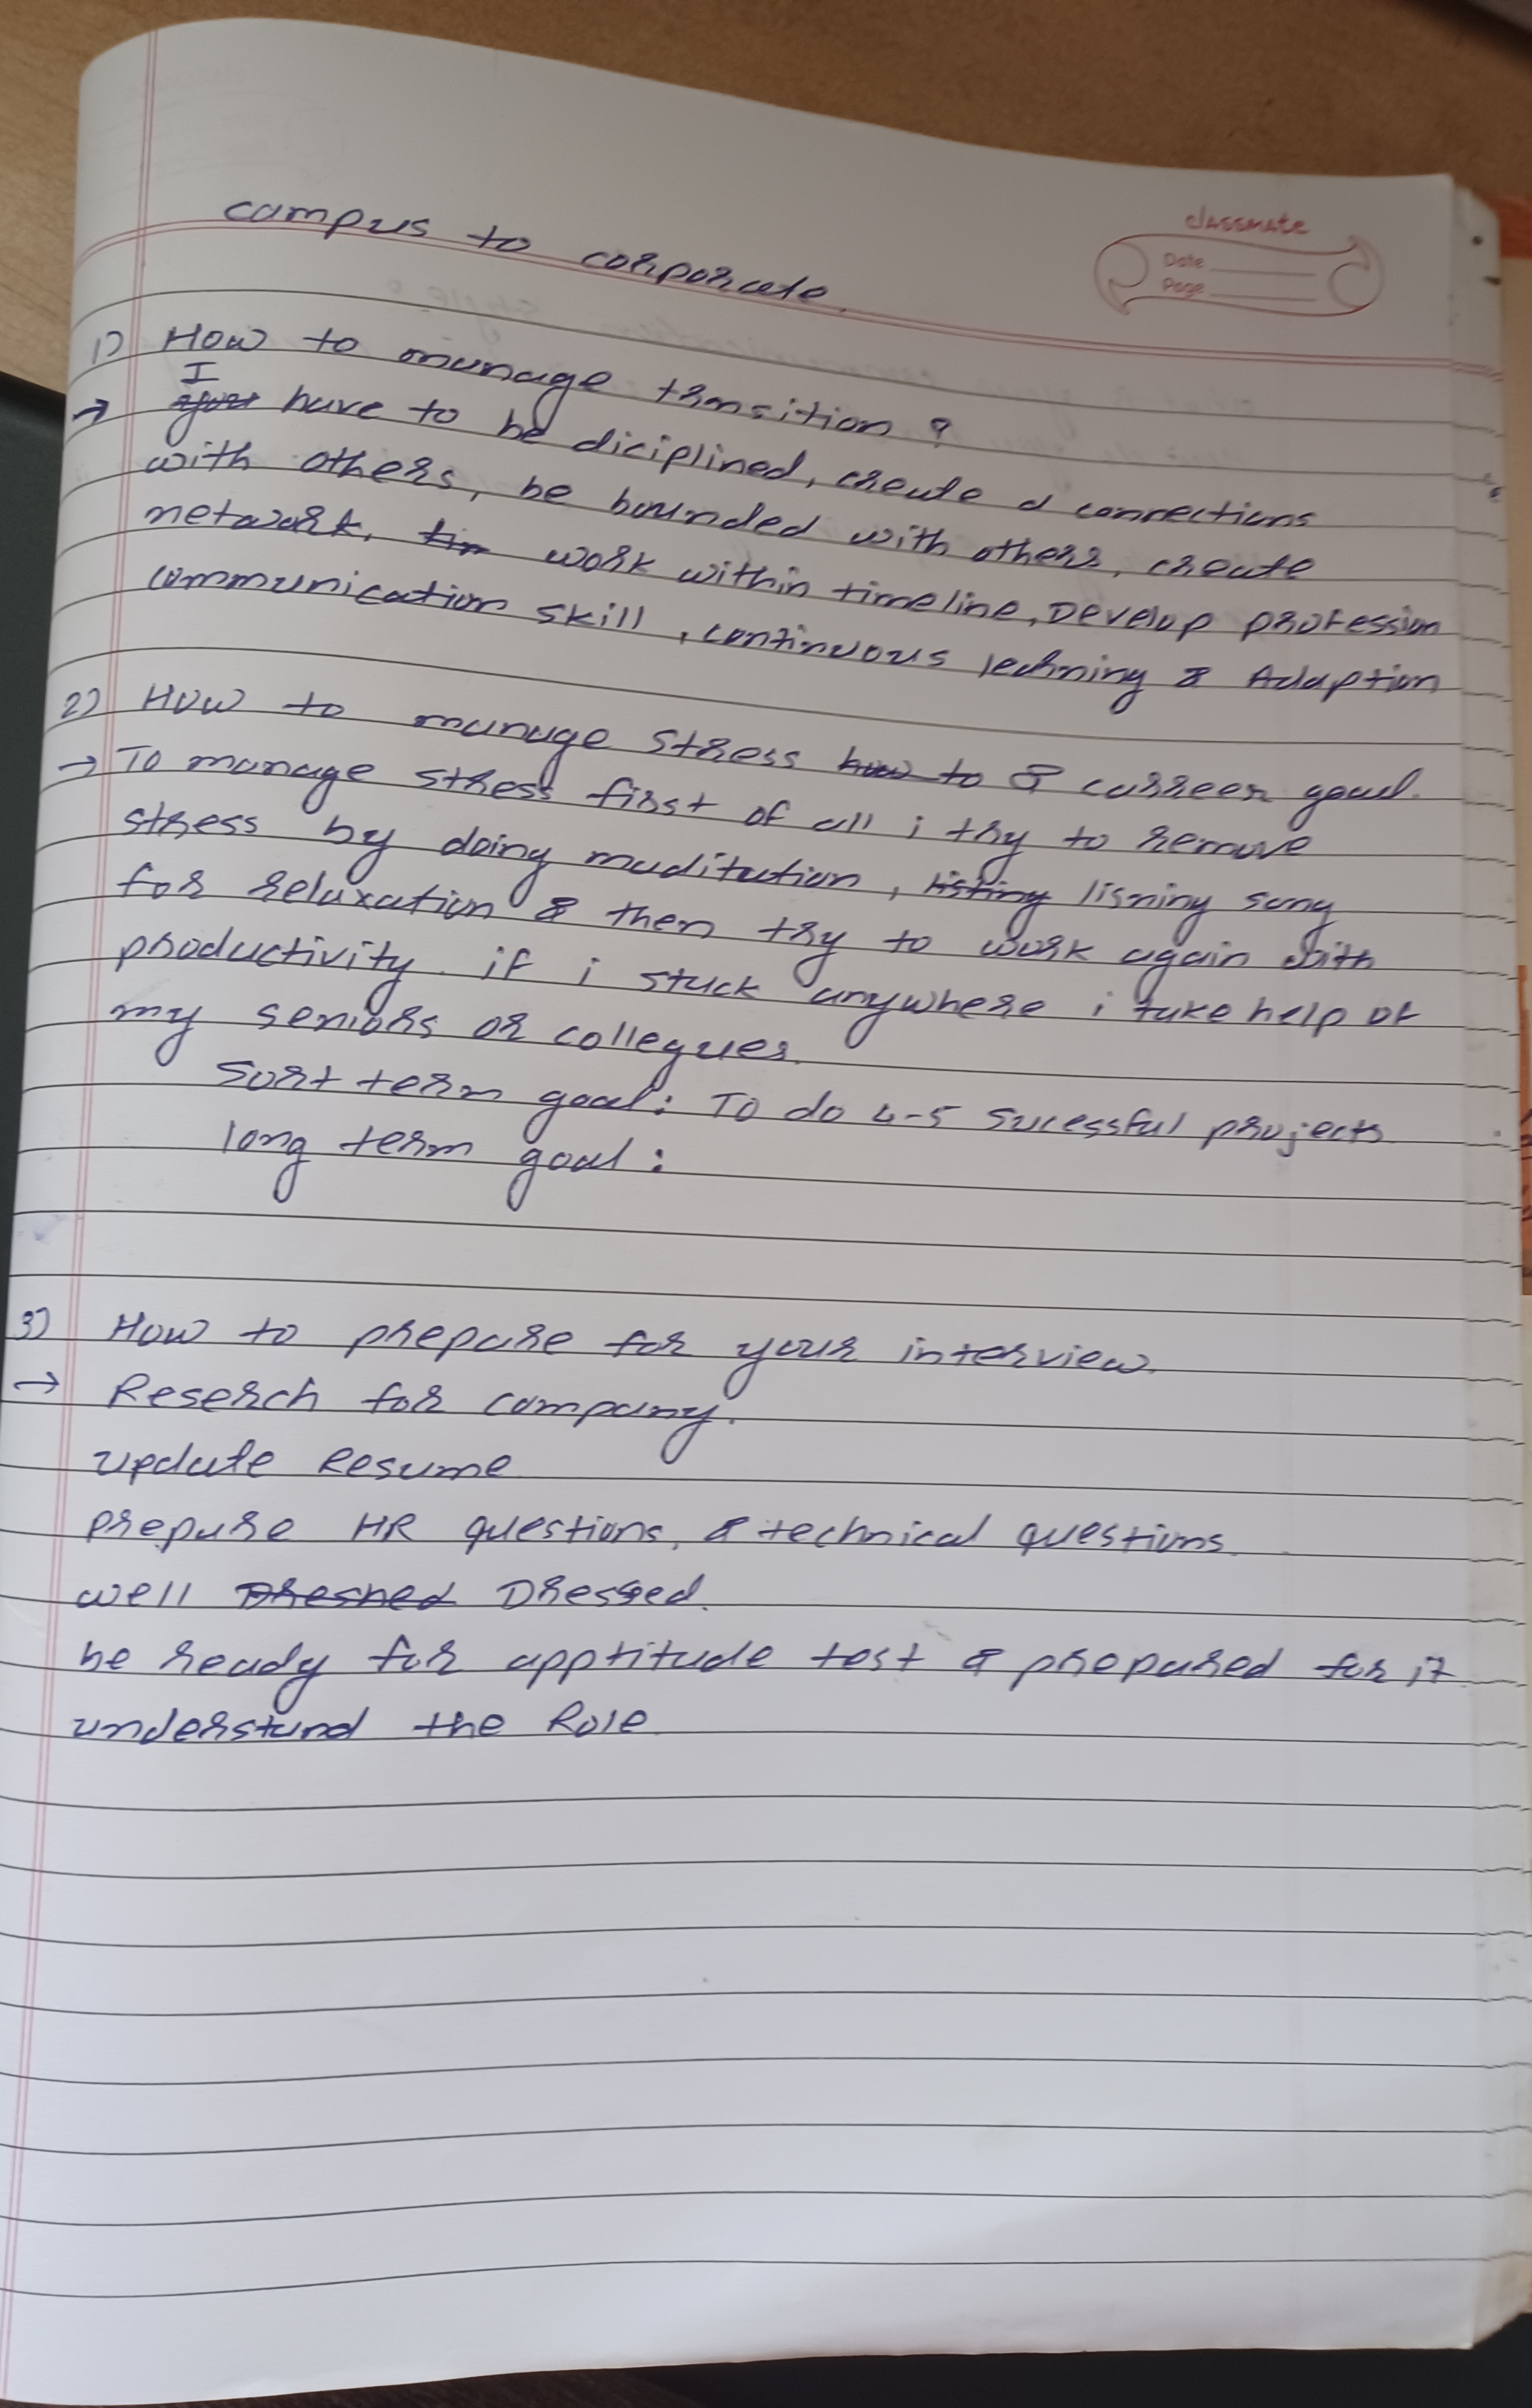 campus to corporate.
classmate
Date
Page
1) How to manage thnsition ?
I
→ have to be diciplined, create a connections
with others, be bounded with others, create
network, work within timeline, Develop profession
communication skill, continuous learning & Adaption
2) How to manage stress & carreer goal.
→ To manage stress first of all i try to remove
stress by doing muditation, lisning song
for relaxation & then try to work again with
productivity. if i stuck anywhere i take help of
my seniors or collegues.
Sort term goal: To do 4-5 sucessful projects
long term goal:
3) How to prepare for your interview.
→ Reserch for company.
update Resume
prepare HR questions, & technical questions.
well Dressed.
be ready for apptitude test & prepared for it.
understand the Role.